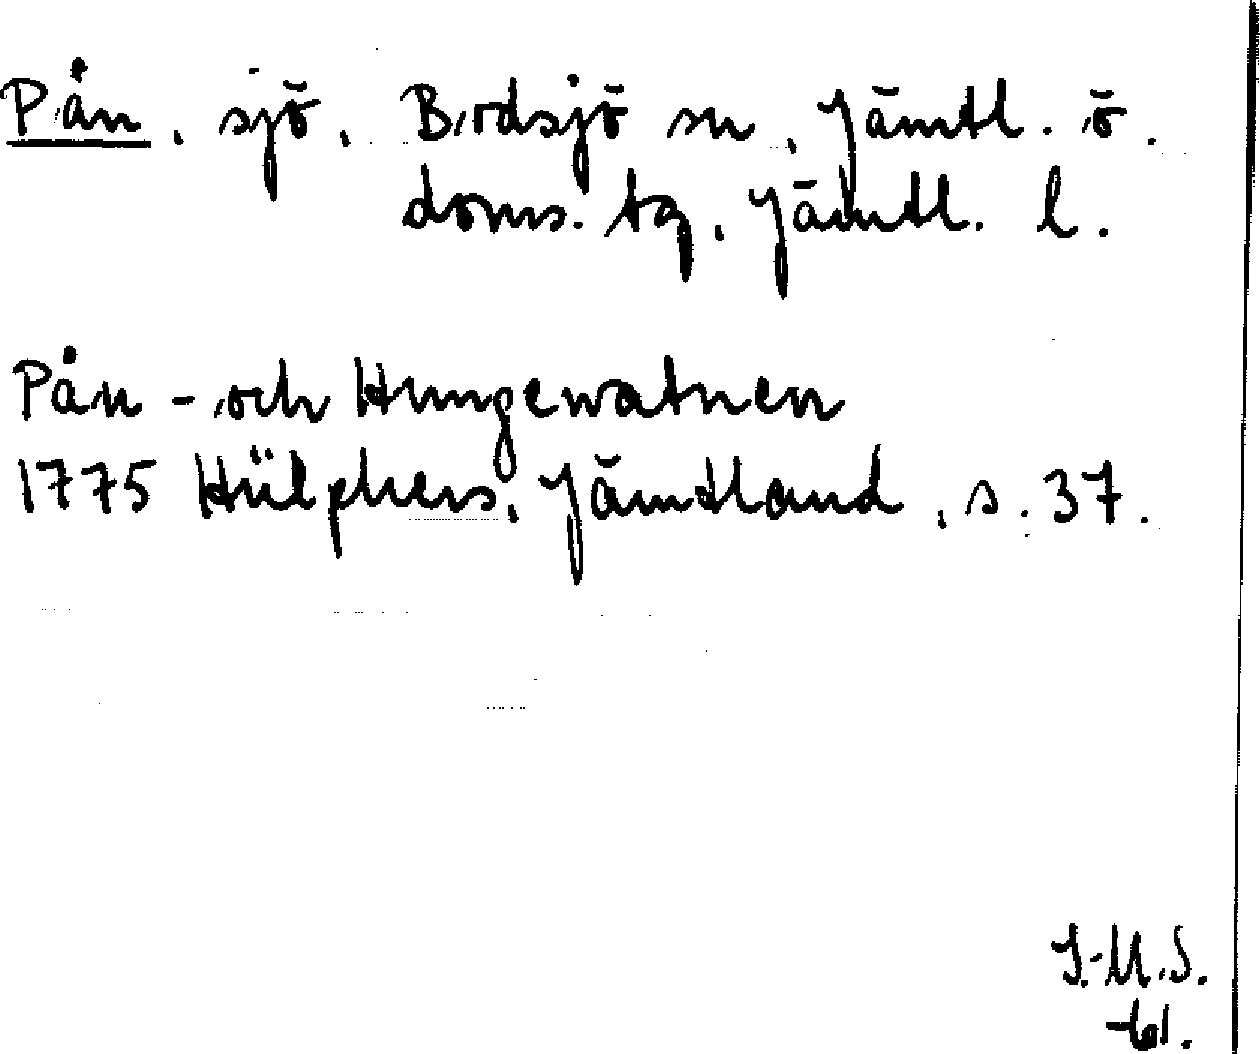 Pån, sjö, Bodsjö sn, Jämtl. ö.
doms. tg, Jämtl. l.
Pån- och Hungewatnen
1775 Hülphers, Jämtland, s. 37.
I.-M.S.
-61.